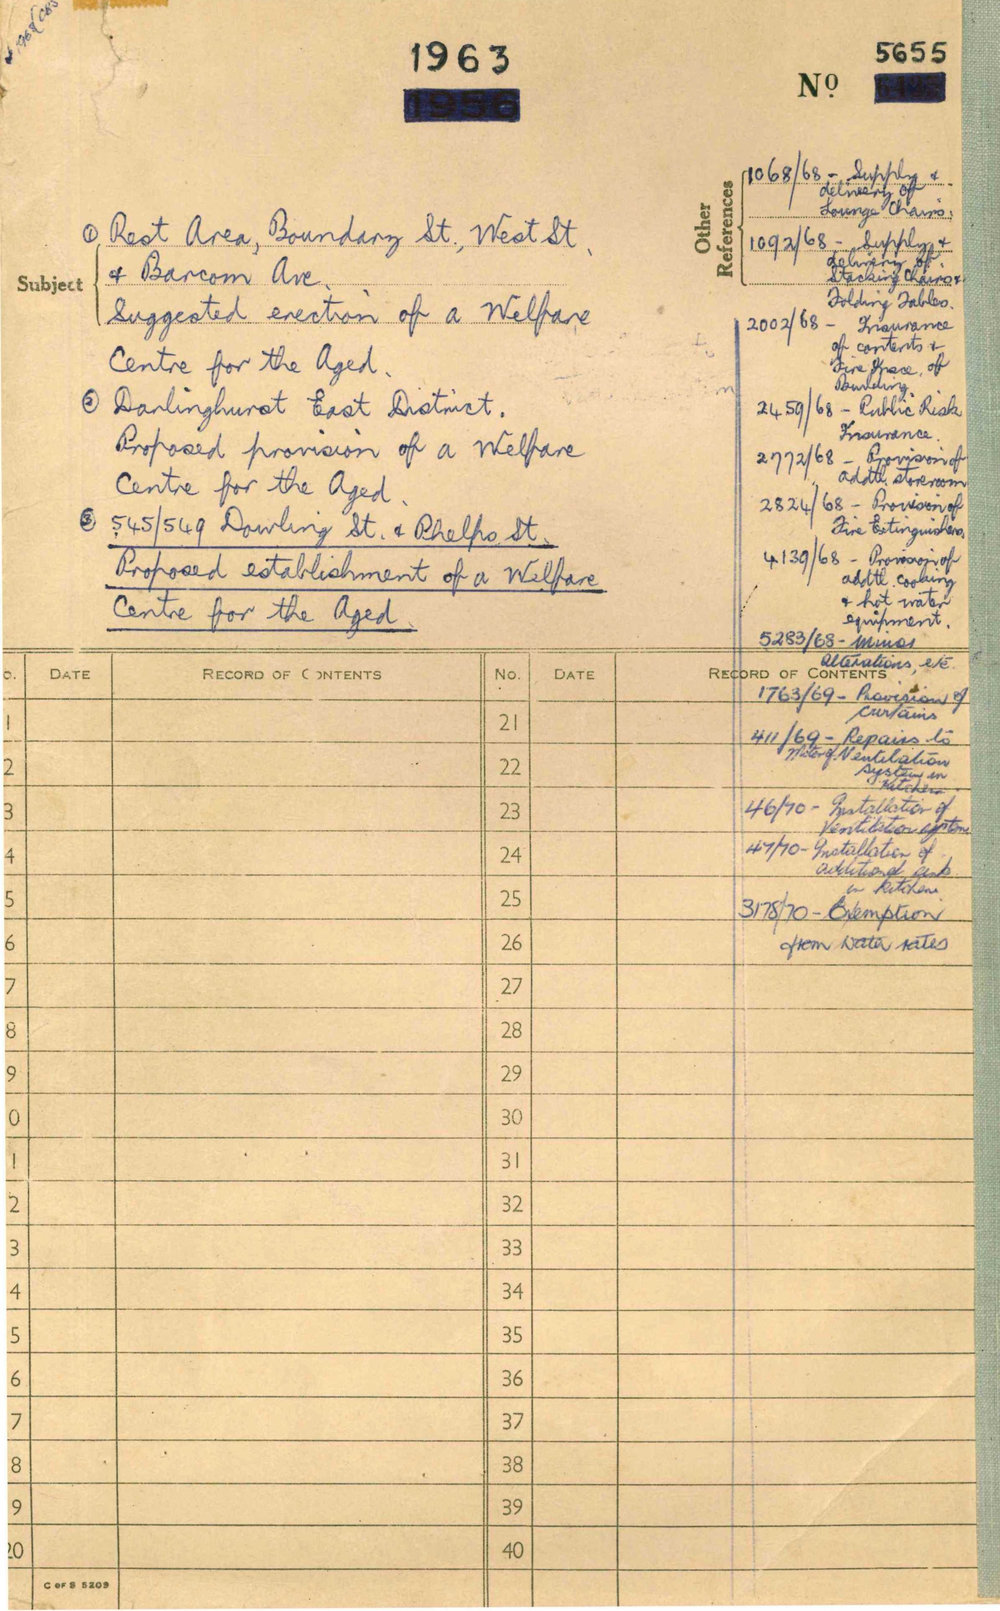 1963
1956
5655
No
Subject
① Rest Area, Boundary St., West St.
& Barcom Ave.
Suggested erection of a Welfare
Centre for the Aged.
② Darlinghurst East District.
Proposed provision of a Welfare
Centre for the Aged.
③ 545/549 Dowling St. & Phelps St.
Proposed establishment of a Welfare
Centre for the Aged.
Other
References
1068/68 - Supply &
delivery of
Lounge Chairs.
1092/68 - Supply &
delivery of
Stacking Chairs &
Folding Tables.
2002/68 - Insurance
of contents &
Fire Insce. of
Building.
2459/68 - Public Risk
Insurance.
2772/68 - Provision of
addtl. storeroom
2824/68 - Provision of
Fire Extinguishers.
4139/68 - Provision of
addtl. cooking
& hot water
equipment.
5283/68 - Minor
alterations, etc.
1763/69 - Provision of
curtains
411/69 - Repairs to
Motor of Ventilation
system in
Kitchen.
46/70 - Installation of
Ventilation system
47/70 - Installation of
additional sink
in kitchen
3178/70 - Exemption
from water rates
o. DATE RECORD OF CONTENTS No. DATE RECORD OF CONTENTS
1 21
2 22
3 23
4 24
5 25
6 26
7 27
8 28
9 29
0 30
1 31
2 32
3 33
4 34
5 35
6 36
7 37
8 38
9 39
20 40
C OF S 5209